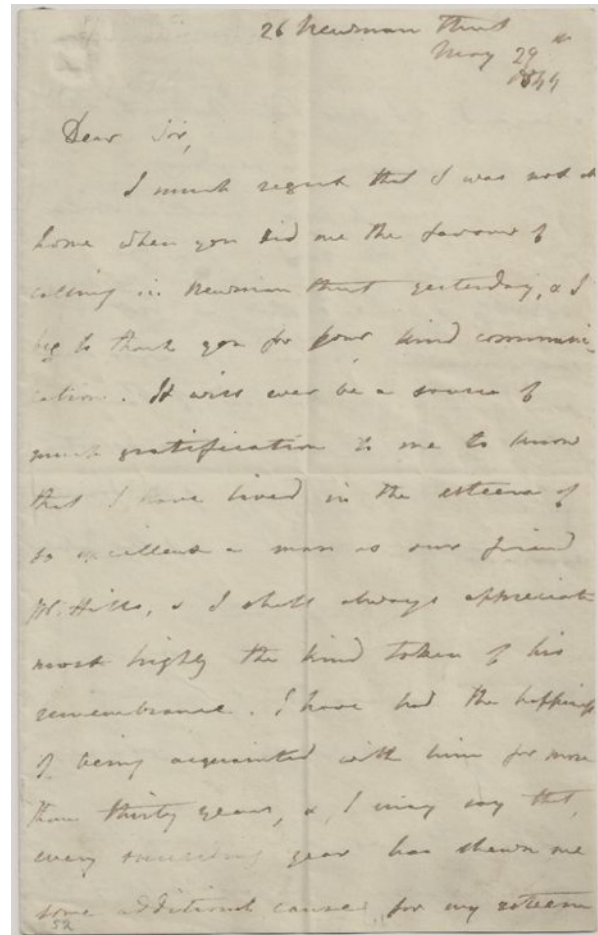 26 Newman Street
May 29th
1849
Dear Sir,
I much regret that I was not at
home when you did me the favour of
calling in Newman Street yesterday, & I
beg to thank you for your kind communi-
cation. It will ever be a source of
much gratification to me to know
that I have lived in the esteem of
so excellent a man as our friend
Mr. Hills, & I shall always appreciate
most highly the kind token of his
remembrance. I have had the happiness
of being acquainted with him for more
than thirty years, & I may say that,
every succeeding year has shewn me
some additional cause for my esteem
52